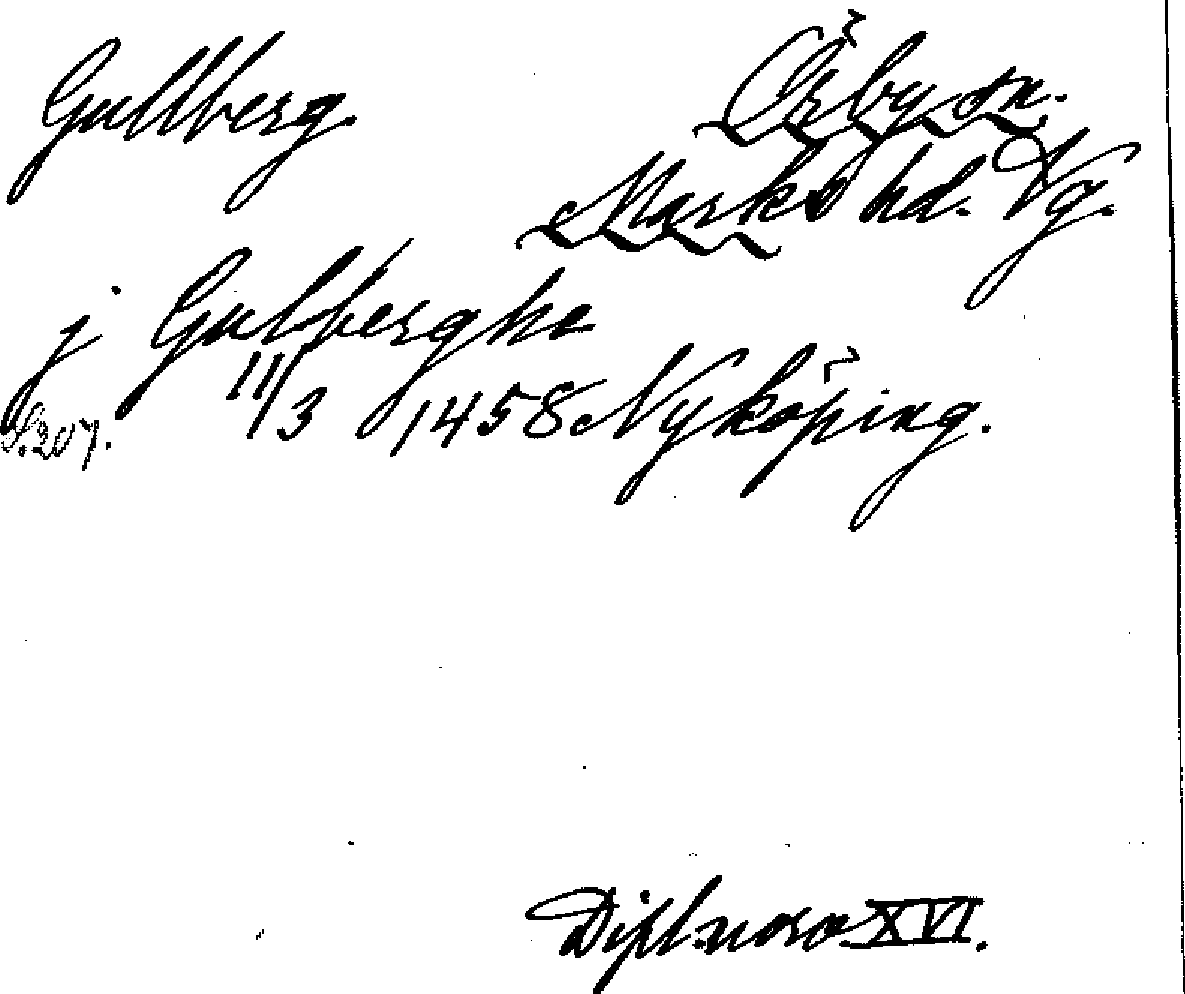 Gullberg. Örby sn.
Marks hd. Vg.
j Gulbergha
S. 207. 11/3 1458 Nyköping.
Dipl. norv. XVI.